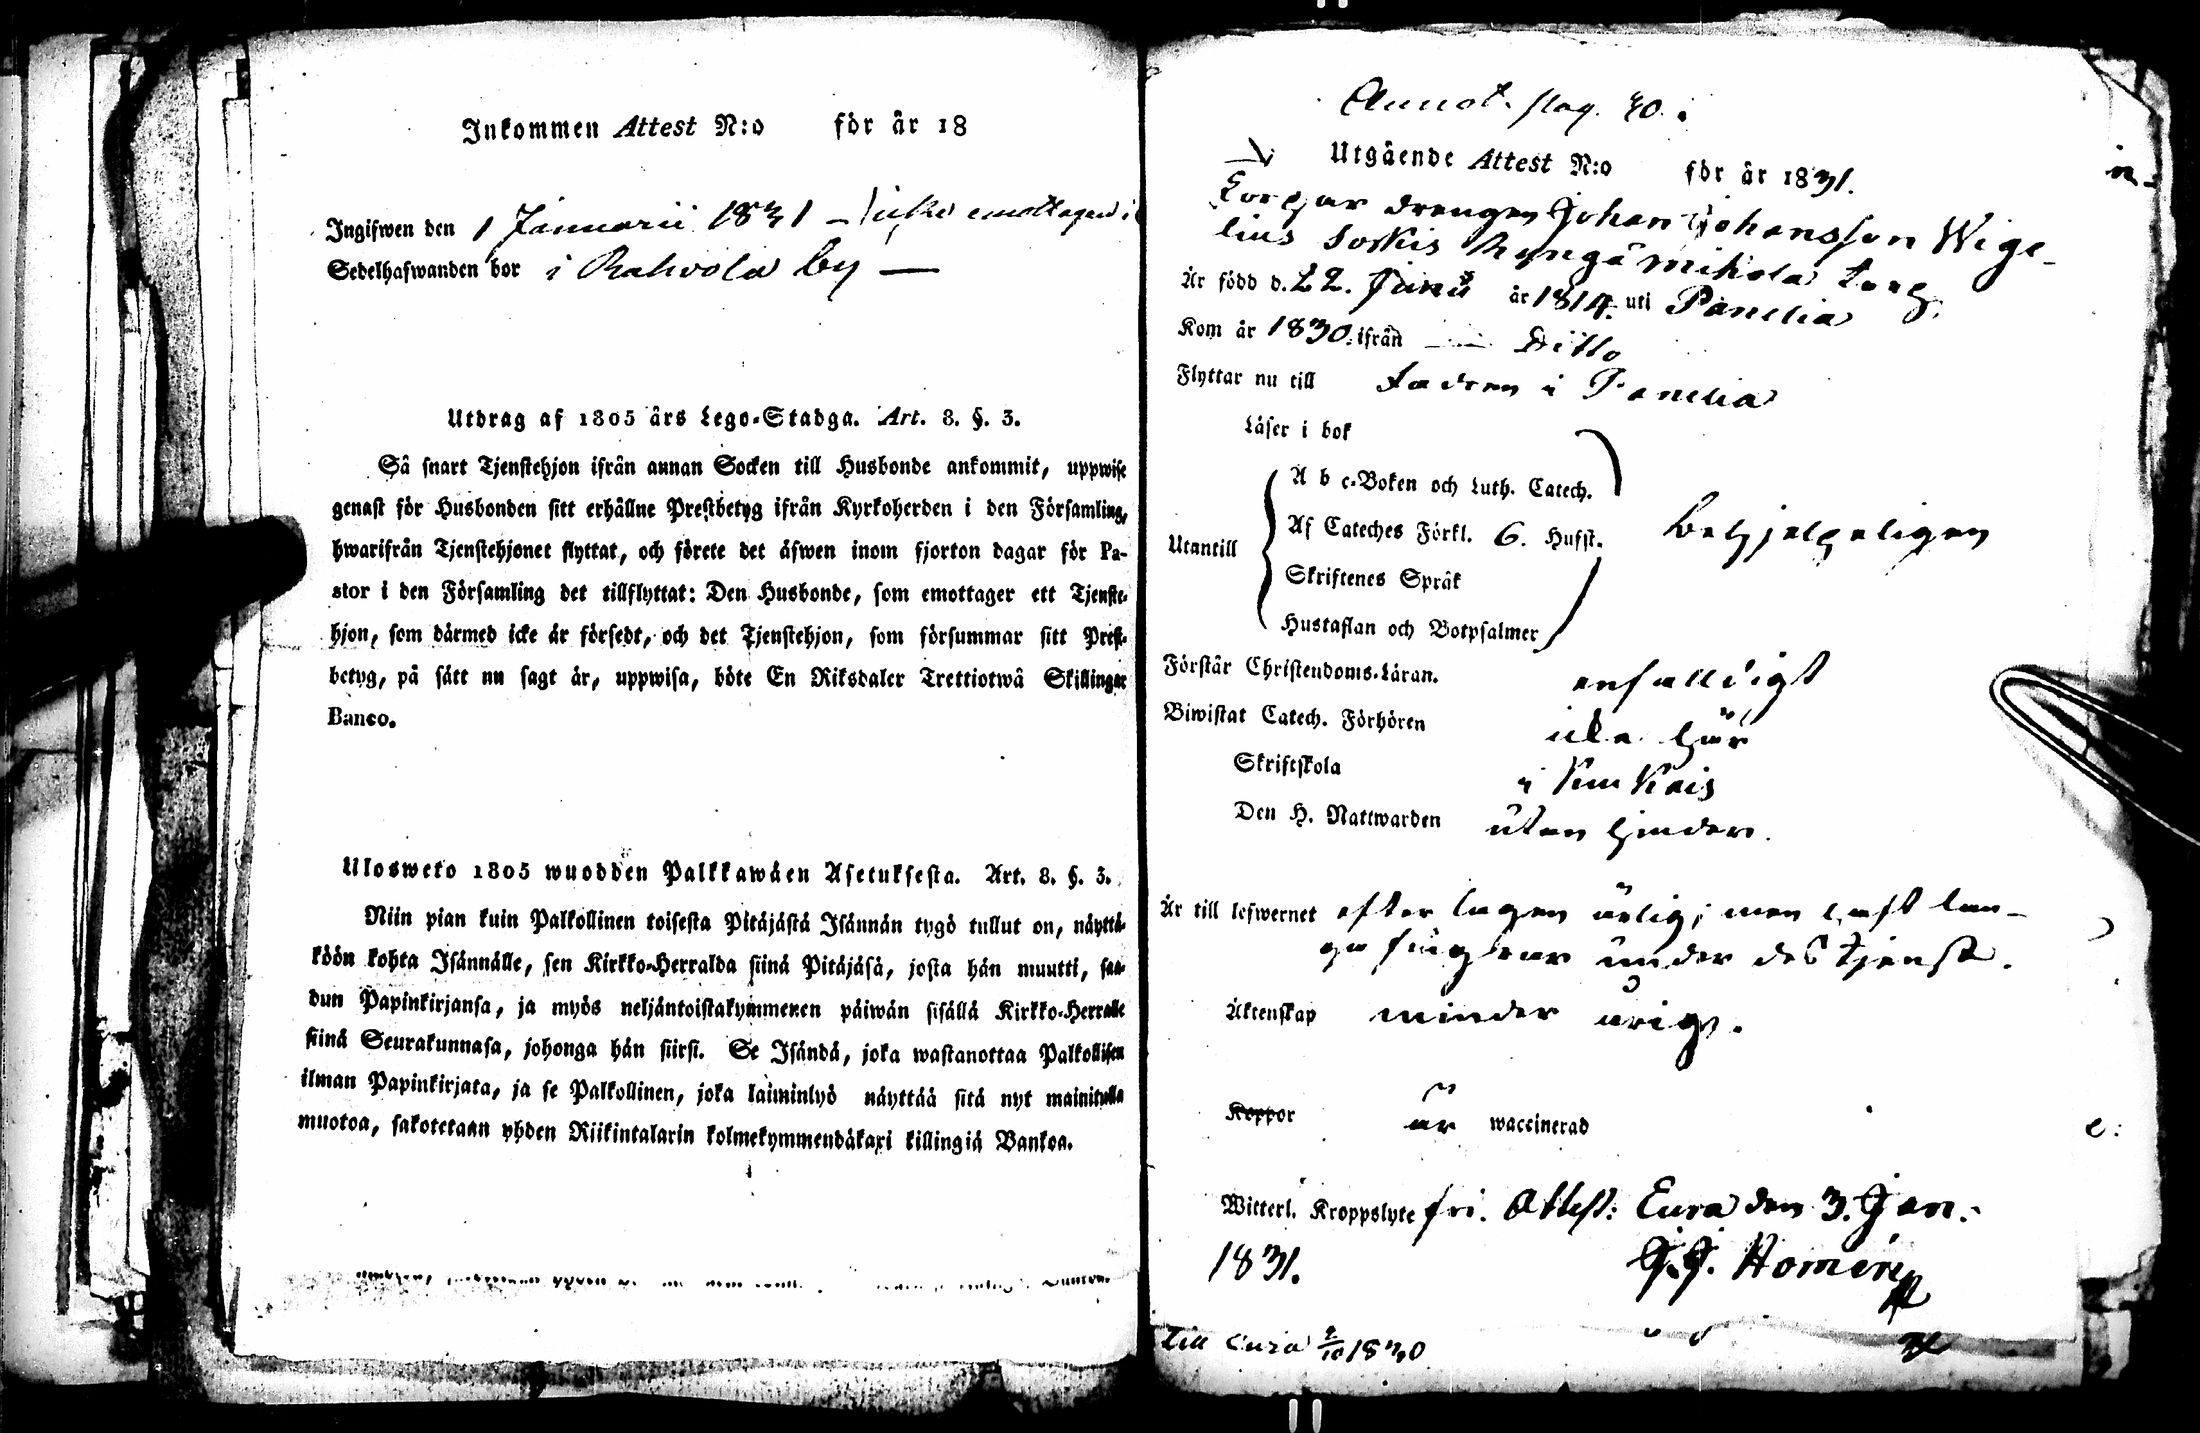 Inkommen Attest N:o för år 18
Ingifwen den 1 Januarii 1831 – icke emottagen i
Sedelhafwanden bor i Rahvola by —
Utdrag af 1805 års Lego-Stadga. Art. 8. §. 3.
Så snart Tjenstehjon ifrån annan Socken till Husbonde ankommit, uppwise
genast för Husbonden sitt erhållne Prestbetyg ifrån Kyrkoherden i den Församling,
hwarifrån Tjenstehjonet flyttat, och förete det äfwen inom fjorton dagar för Pa-
stor i den Församling det tillflyttat: Den Husbonde, som emottager ett Tjenste-
hjon, som därmed icke är försedt, och det Tjenstehjon, som försummar sitt Prest-
betyg, på sätt nu sagt är, uppwisa, böte En Riksdaler Trettiotwå Skillingar
Banco.
Ulosweto 1805 wuodden Palkkawäen Asetuksesta. Art. 8. §. 3.
Niin pian kuin Palkollinen toisesta Pitäjästä Isännän tygö tullut on, näyttä-
köön kohta Isännälle, sen Kirkko-Herralda siinä Pitäjäsä, josta hän muutti, saa-
dun Papinkirjansa, ja myös neljäntoistakymmenen päiwän sisällä Kirkko-Herralle
siinä Seurakunnasa, johonga hän siirsi. Se Isändä, joka wastanottaa Palkollisen
ilman Papinkirjata, ja se Palkollinen, joka laiminlyö näyttää sitä nyt mainitulla
muotoa, sakotetaan yhden Riikintalarin kolmekymmendäkaxi killingiä Bankoa.
Annot. pag. 40.
Utgående Attest N:o för år 1831.
Torpar drengen Johan Johansson Wige-
lius Sorkis torp
Är född d. 22. Junii år 1814. uti Panelia
Kom år 1830. ifrån Ditto
Flyttar nu till fadren i Panelia
Läser i bok
Utantill
A b c-Boken och Luth. Catech.
Af Cateches Förkl. 6. Hufst. behjelpeligen
Skriftenes Språk
Hustaflan och Botpsalmer
Förstår Christendoms-Läran. enfalldigt
Biwistat Catech. Förhören icke här
Skriftskola i Kiukais
Den H. Nattwarden utan hinder.
Är till lefwernet efter lagen ärlig; men haft lån-
ga fingrar under des tjenst.
Äktenskap minder årige.
Koppor är waccinerad
Witterl. Kroppslyte fri. Attest: Eura den 3. Jan.
1831. J. J. Homén
till Eura 2/10 1830